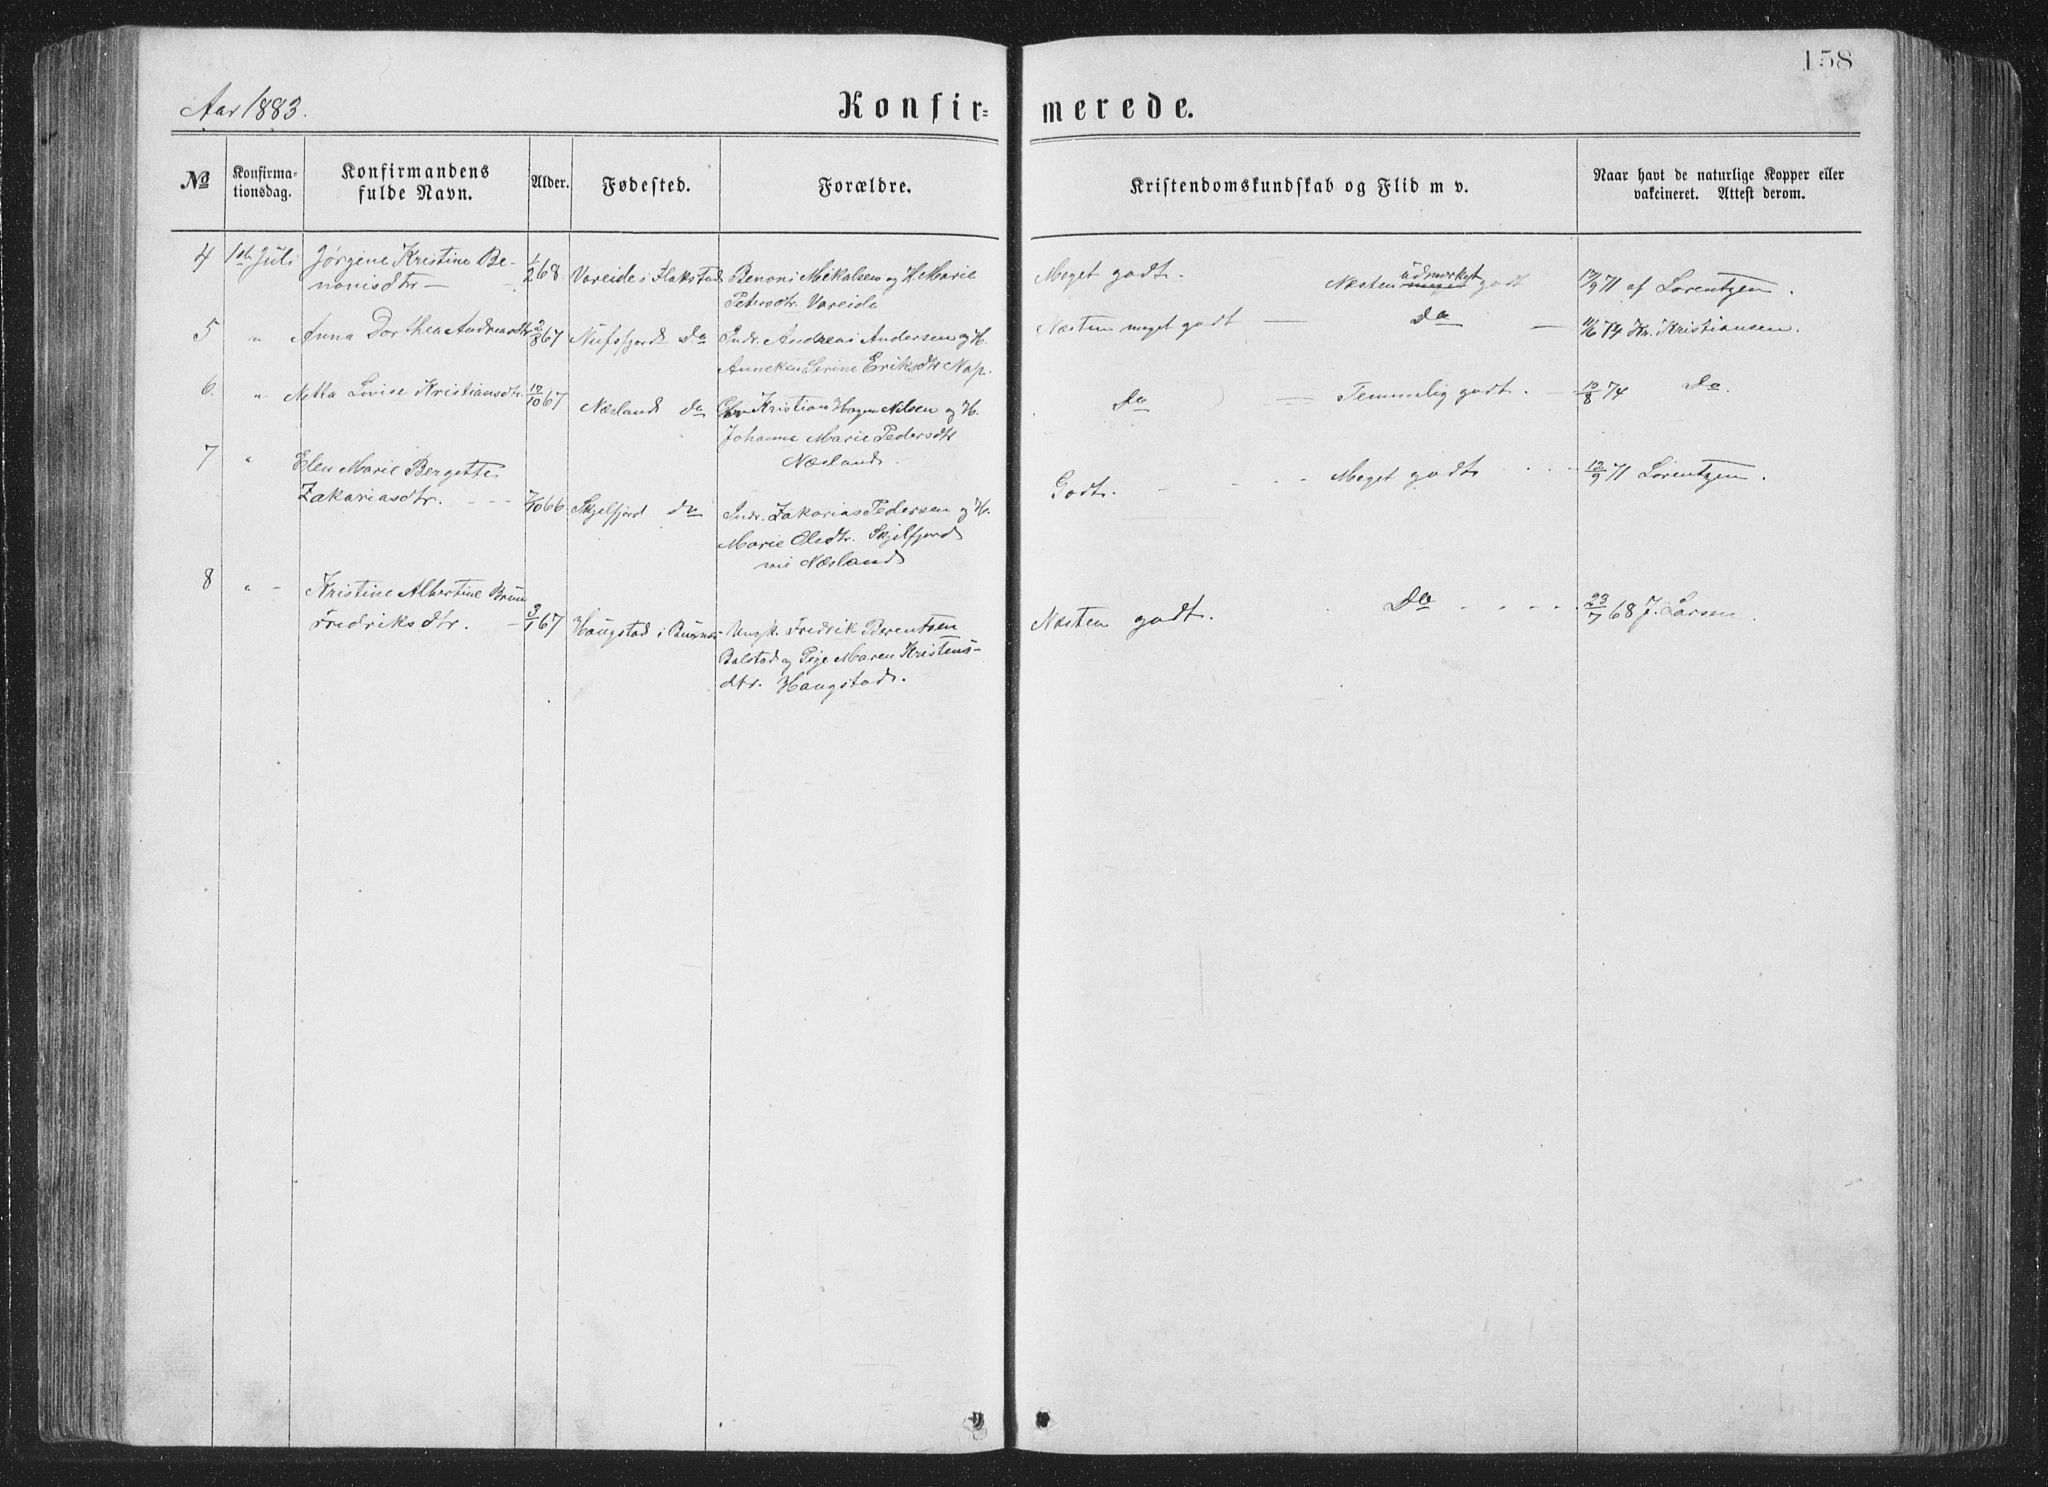 158
Aar 1883.
Konfir-
merede.
No
Konfirma-
tionsdag.
Konfirmandens
fulde Navn.
Alder.
Fødested.
Forældre.
Kristendomskundskab og Flid m v.
Naar havt de naturlige Kopper eller
vakcineret. Attest derom.
4 1ste Juli Jørgine Kristine Be- 1/2 68 Vareide i Flakstad Benoni Mikalsen og H. Marie Meget godt. Næsten udmerket godt 17/9 71 af Lorentzen.
nonisdtr — Petersdtr. Vareide
5 " Anna Dorthea Andreasdtr 2/8 67 Nufsfjord Do Indr. Andreas Andersen og H. Næsten meget godt — Do — 11/6 74 Kr. Kristiansen.
Anneken Serine Eriksdtr Nap.
6. " Netta Lovise Kristiansdtr. 12/10 67 Næsland Do Kristian Hagen Nilsen og H. Do — Temmelig godt. — 10/8 74 Do.
Johanna Marie Pedersdtr
Næsland.
7 " Elen Marie Bergette Meget godt 12/9 71 Lorentzen.
Zakariasdtr. 7/10 66 Skjelfjord Do Indr. Zakarias Pedersen og H. Godt.
Marie Olsdtr. Skjelfjord
Næsland
8 " Kristine Albertine Bruun
Fredriksdtr. 3/1 67 Haugstad i Buxnes Ungk. Fredrik Berentsen Næsten godt. Do 23/7 68 J. Larsen
Balstad og Pige Maren Kristens-
dtr. Haugstad.